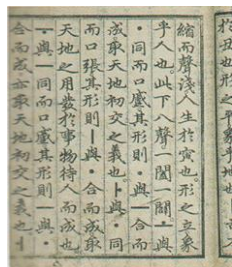 於丑也形之平象乎地也
縮而聲淺人生於寅也形之立象
乎人也此下八聲一闔一闢ㅗ與
ㆍ同而口蹙其形則ㆍ與ㅡ合而
成取天地初交之義也ㅏ與ㆍ同
而口張其形則ㅣ與ㆍ合而成取
天地之用發於事物待人而成也
ㅜ與ㅡ同而口蹙其形則ㅡ與ㆍ
合而成亦取天地初交之義也ㅓ